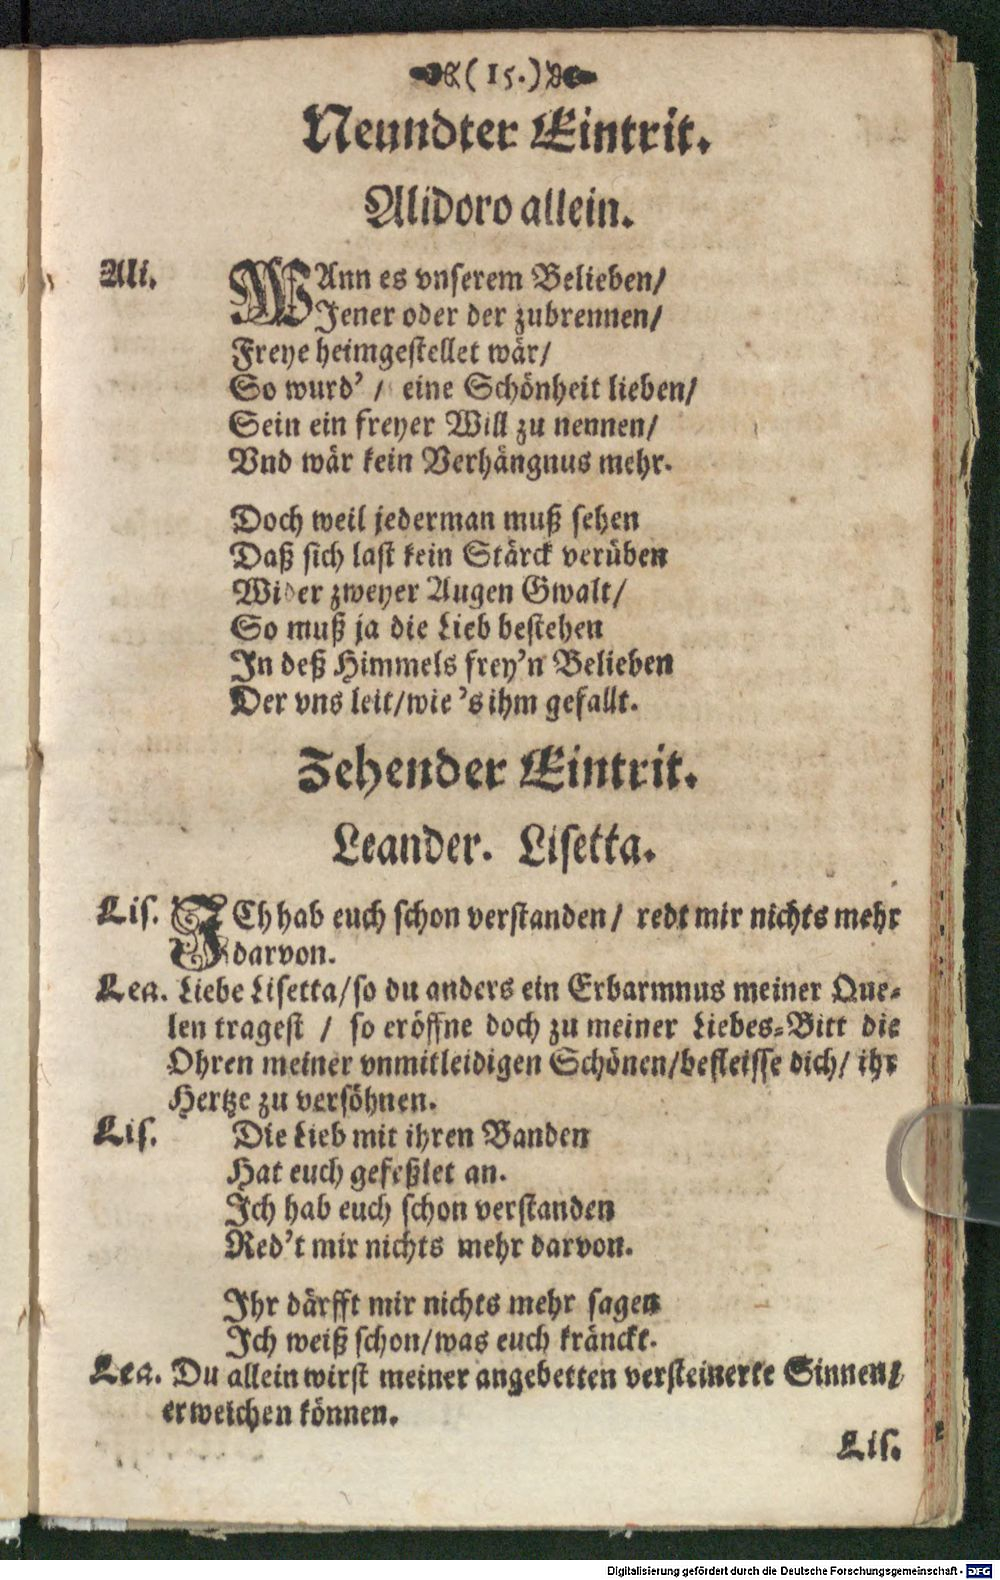 (15.)
Neundter Eintrit.
Alidoro allein.
Ali. WAnn es vnserem Belieben/
Jener oder der zubrennen/
Freye heimgestellet wär/
So wurd' / eine Schönheit lieben/
Sein ein freyer Will zu nennen/
Vnd wär kein Verhängnus mehr.
Doch weil jederman muß sehen
Daß sich last kein Stärck verüben
Wider zweyer Augen Gwalt/
So muß ja die Lieb bestehen
In deß Himmels frey'n Belieben
Der vns leit/wie 's ihm gefallt.
Zehender Eintrit.
Leander. Lisetta.
Lis. ICh hab euch schon verstanden/ redt mir nichts mehr
darvon.
Lea. Liebe Lisetta/so du anders ein Erbarmnus meiner Que-
len tragest / so eröffne doch zu meiner Liebes-Bitt die
Ohren meiner vnmitleidigen Schönen/befleisse dich/ ihr
Hertze zu versöhnen.
Lis. Die Lieb mit ihren Banden
Hat euch gefeßlet an.
Ich hab euch schon verstanden
Red't mir nichts mehr darvon.
Ihr därfft mir nichts mehr sagen
Ich weiß schon/was euch kränckt.
Lea. Du allein wirst meiner angebetten versteinerte Sinnen/
erweichen können.
Lis.
Digitalisierung gefördert durch die Deutsche Forschungsgemeinschaft - DFG